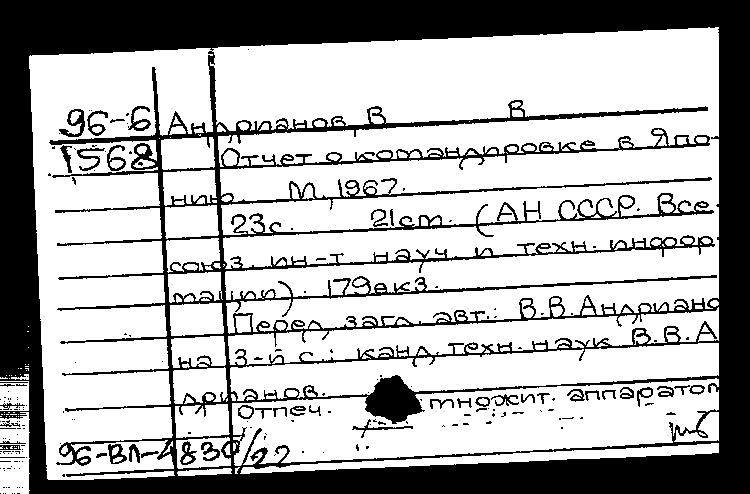 96-6 Андрианов, В В
1568 Отчет о командировке в Япо-
нию. М., 1967.
23с. 21см. (АН СССР. Все-
союз. ин-т науч. и техн. инфор-
мации). 179экз.
Перед загл. авт.: В.В.Андриано
на 3-й с.: канд. техн. наук В.В.А
дрианов.
Отпеч. множит. аппаратом
96-ВЛ-4830/22